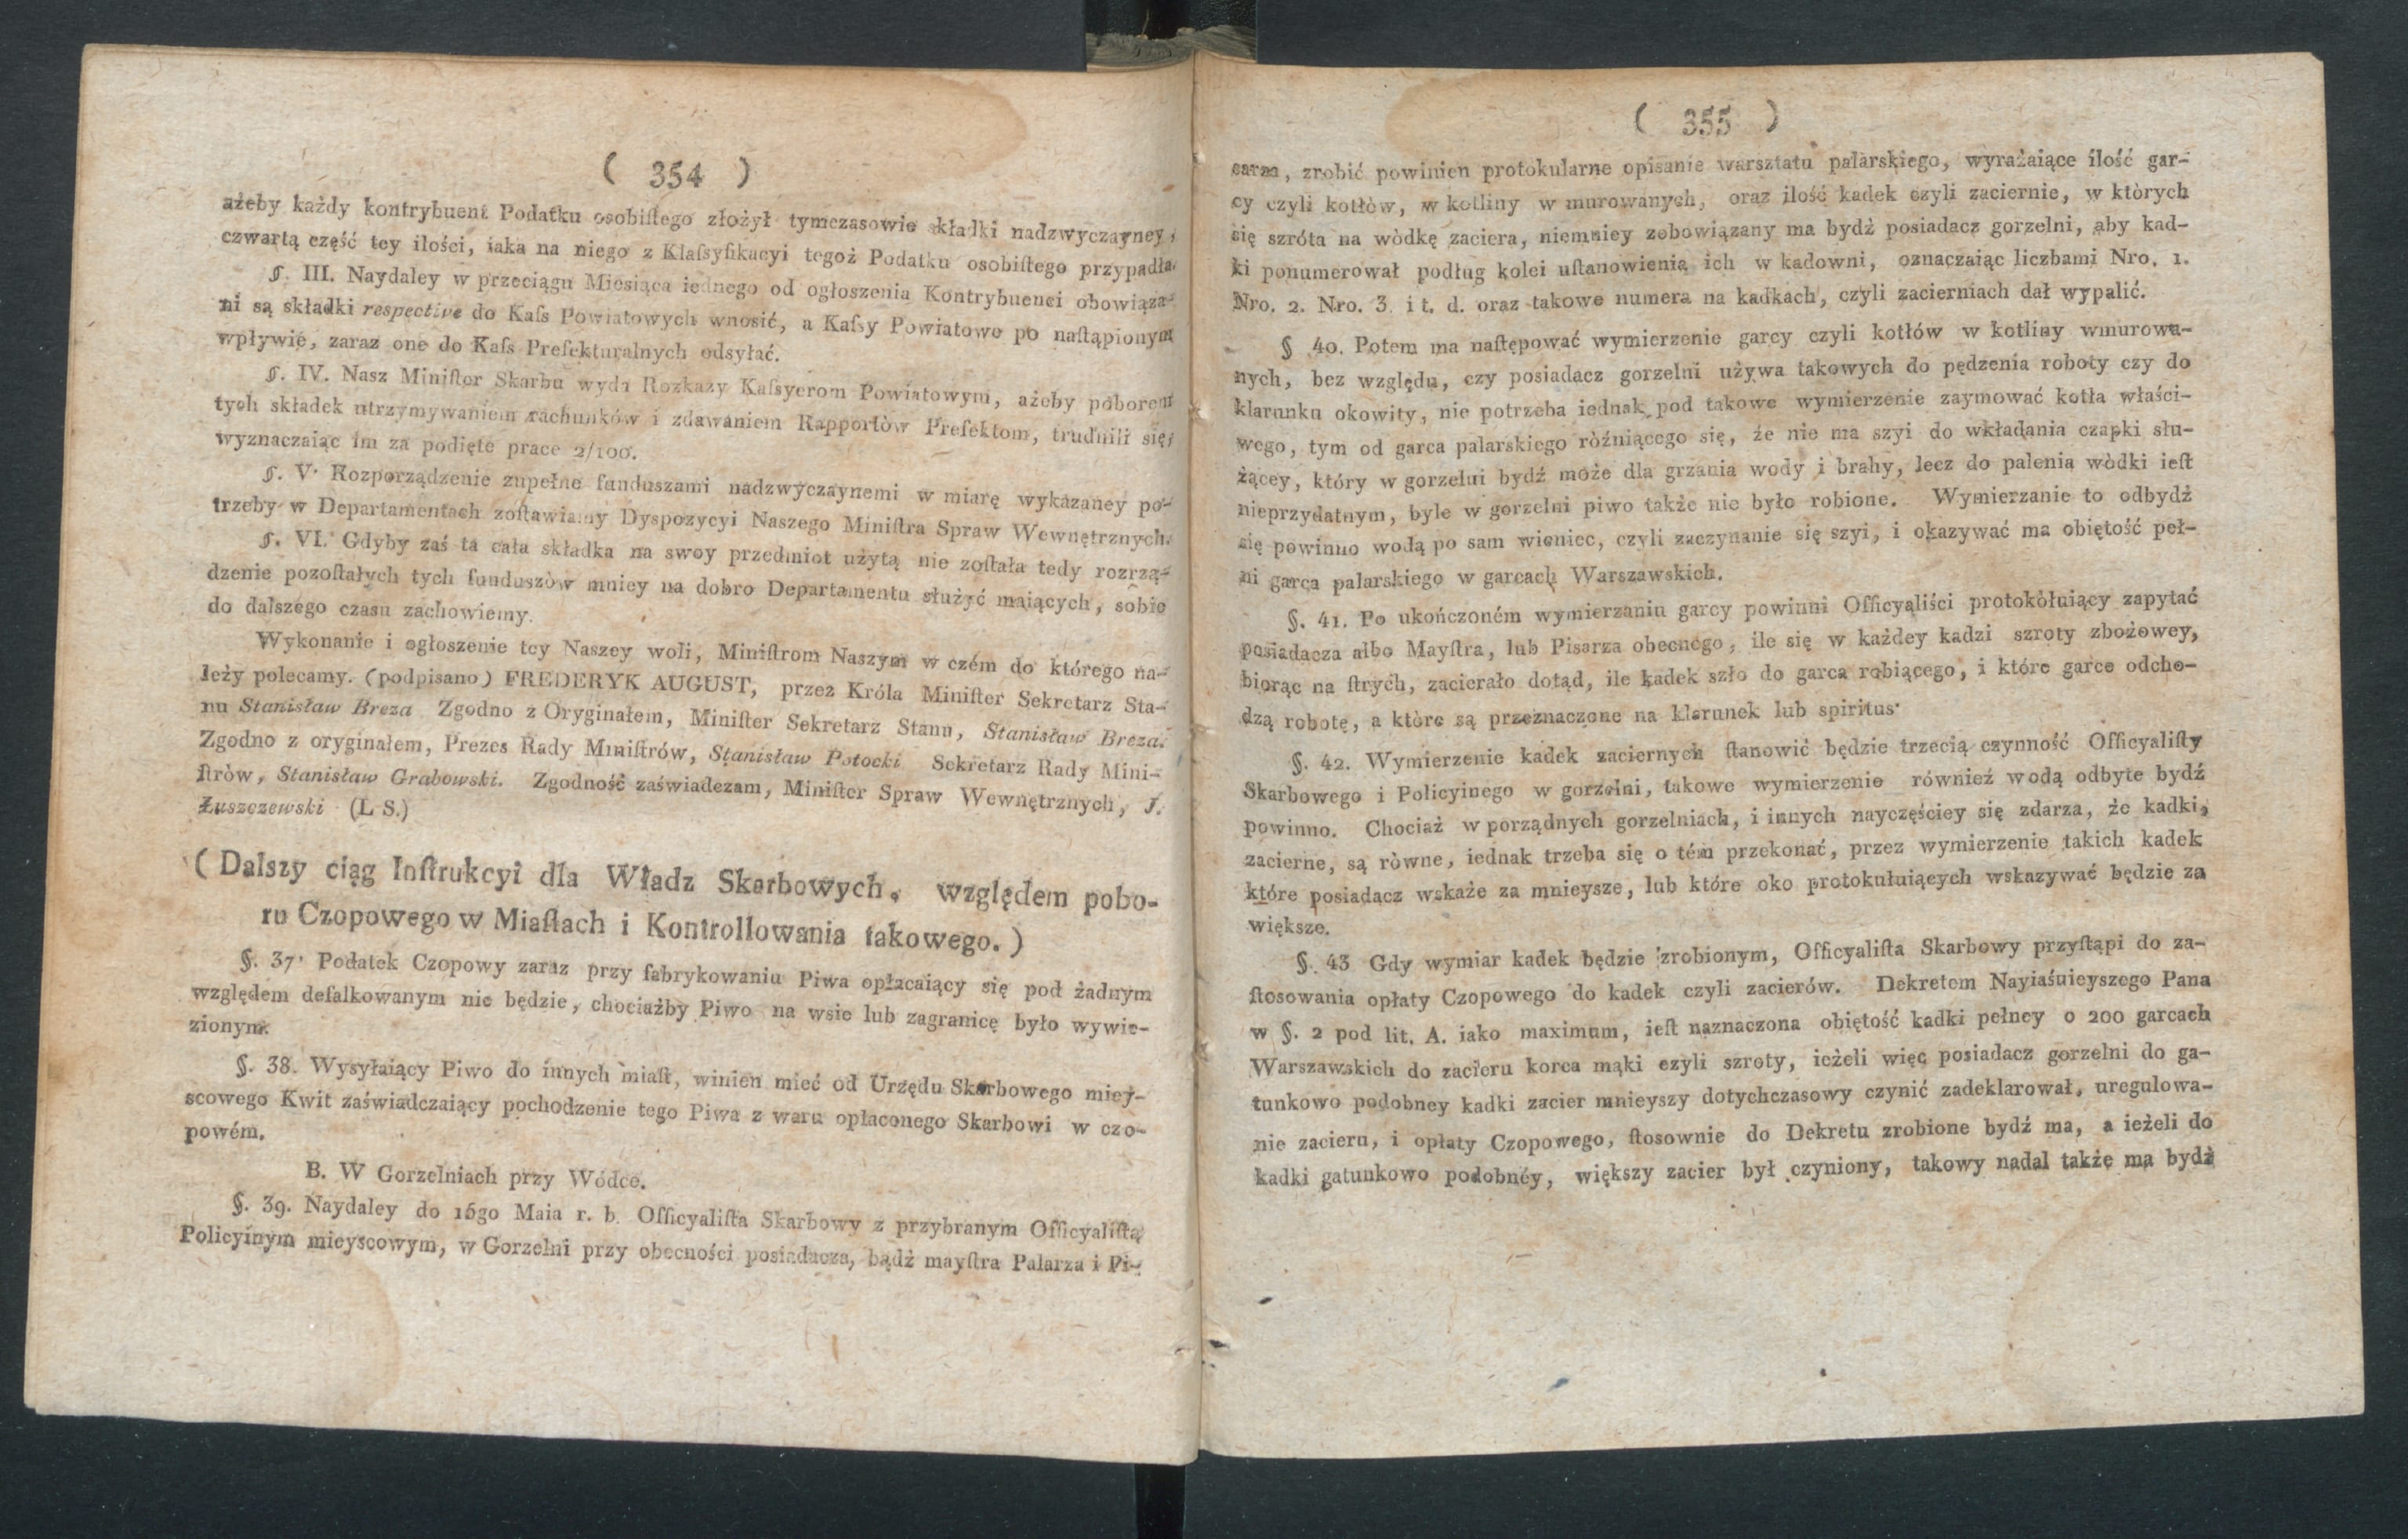 ( 354 )
ażeby każdy kontrybuent Podatku osobiſtego złożył tymczasowie składki nadzwyczayney
czwartą część tey ilości, iaka na niego z Klaſsyfikacyi tegoż Podatku osobiſtego przypadła.
§. III. Naydaley w przeciągu Miesiąca iednego od ogłoszenia Kontrybuenci obowiąza-
ni są składki respective do Kaſs Powiatowych wnosić, a Kaſsy Powiatowe po naſtąpionym
wpływie, zaraz one do Kaſs Prefekturalnych odsyłać.
§. IV. Nasz Miniſter Skarbu wyda Rozkazy Kaſsyerom Powiatowym, ażeby poborem
tych składek utrzymywaniem rachunków i zdawaniem Rapportòw Prefektom, trudnili się,
wyznaczaiąc im za podięte prace 2/100.
§. V. Rozporządzenie zupełne funduszami nadzwyczaynemi w miarę wykazaney po-
trzeby w Departamentach zoſtawiamy Dyspozycyi Naszego Miniſtra Spraw Wewnętrznych.
§. VI. Gdyby zaś ta cała składka na swoy przedmiot użytą nie zoſtała tedy rozrzą-
dzenie pozoſtałych tych funduszòw mniey na dobro Departamentu służyć maiących, sobie
do dalszego czasu zachowiemy.
Wykonanie i ogłoszenie tey Naszey woli, Miniſtrom Naszym w czém do którego na-
leży polecamy. (podpisano) FREDERYK AUGUST, przez Króla Miniſter Sekretarz Sta-
nu Stanisław Breza Zgodno z Oryginałem, Miniſter Sekretarz Stanu, Stanisław Breza.
Zgodno z oryginałem, Prezes Rady Miniſtrów, Stanisław Potocki Sekretarz Rady Mini-
ſtròw, Stanisław Grabowski. Zgodność zaświadczam, Miniſter Spraw Wewnętrznych, J.
Łuszczewski (L S.)
( Dalszy ciąg Inſtrukcyi dla Władz Skarbowych, względem pobo-
ru Czopowego w Miaſtach i Kontrollowania takowego. )
§. 37. Podatek Czopowy zaraz przy fabrykowaniu Piwa opłacaiący się pod żadnym
względem defalkowanym nie będzie, chociażby Piwo na wsie lub zagranicę było wywie-
zionym.
§. 38. Wysyłaiący Piwo do innych miaſt, winien mieć od Urzędu Skarbowego miey-
scowego Kwit zaświadczaiący pochodzenie tego Piwa z waru opłaconego Skarbowi w czo-
powém.
B. W Gorzelniach przy Wódce.
§. 39. Naydaley do 16go Maia r. b. Officyaliſta Skarbowy z przybranym Officyaliſtą
Policyinym mieyscowym, w Gorzelni przy obecności posiadacza, bądź mayſtra Palarza i Pi-
( 355 )
sarza, zrobić powinien protokularne opisanie warsztatu palarskiego, wyrażaiące ilość gar-
cy czyli kotłów, w kotliny w murowanych, oraz ilość kadek czyli zaciernie, w których
się szróta na wòdkę zaciera, niemniey zobowiązany ma bydź posiadacz gorzelni, aby kad-
ki ponumerował podług kolei uſtanowienia ich w kadowni, oznaczaiąc liczbami Nro. 1.
Nro. 2. Nro. 3. i t. d. oraz takowe numera na kadkach, czyli zacierniach dał wypalić.
§ 40. Potem ma naſtępować wymierzenie garcy czyli kotłów w kotliny wmurowa-
nych, bez względu, czy posiadacz gorzelni używa takowych do pędzenia roboty czy do
klarunku okowity, nie potrzeba iednak pod takowe wymierzenie zaymować kotła właści-
wego, tym od garca palarskiego ròżniącego się, że nie ma szyi do wkładania czapki słu-
żącey, który w gorzelni bydź może dla grzania wody i brahy, lecz do palenia wòdki ieſt
nieprzydatnym, byle w gorzelni piwo także nie było robione. Wymierzanie to odbydź
się powinno wodą po sam wieniec, czyli zaczynanie się szyi, i okazywać ma obiętość peł-
ni garca palarskiego w garcach Warszawskich.
§. 41. Po ukończoném wymierzaniu garcy powinni Officyaliści protokòłuiący zapytać
posiadacza albo Mayſtra, lub Pisarza obecnego, ile się w każdey kadzi szroty zbożowey,
biorąc na ſtrych, zacierało dotąd, ile kadek szło do garca robiącego, i które garce odcho-
dzą robotę, a ktòre są przeznaczone na klarunek lub spiritus.
§. 42. Wymierzenie kadek zaciernych ſtanowić będzie trzecią czynność Officyaliſty
Skarbowego i Policyinego w gorzelni, takowe wymierzenie również wodą odbyte bydź
powinno. Chociaż w porządnych gorzelniach, i innych nayczęściey się zdarza, że kadki,
zacierne, są ròwne, iednak trzeba się o tém przekonać, przez wymierzenie takich kadek
które posiadacz wskaże za mnieysze, lub które oko protokułuiących wskazywać będzie za
większe.
§. 43 Gdy wymiar kadek będzie zrobionym, Officyaliſta Skarbowy przyſtąpi do za-
ſtosowania opłaty Czopowego do kadek czyli zacierów. Dekretem Nayiaśnieyszego Pana
w §. 2 pod lit. A. iako maximum, ieſt naznaczona obiętość kadki pełney o 200 garcach
Warszawskich do zacieru korca mąki czyli szroty, ieżeli więc posiadacz gorzelni do ga-
tunkowo podobney kadki zacier mnieyszy dotychczasowy czynić zadeklarował, uregulowa-
nie zacieru, i opłaty Czopowego, ſtosownie do Dekretu zrobione bydź ma, a ieżeli do
kadki gatunkowo podobnéy, większy zacier był czyniony, takowy nadal także ma bydź